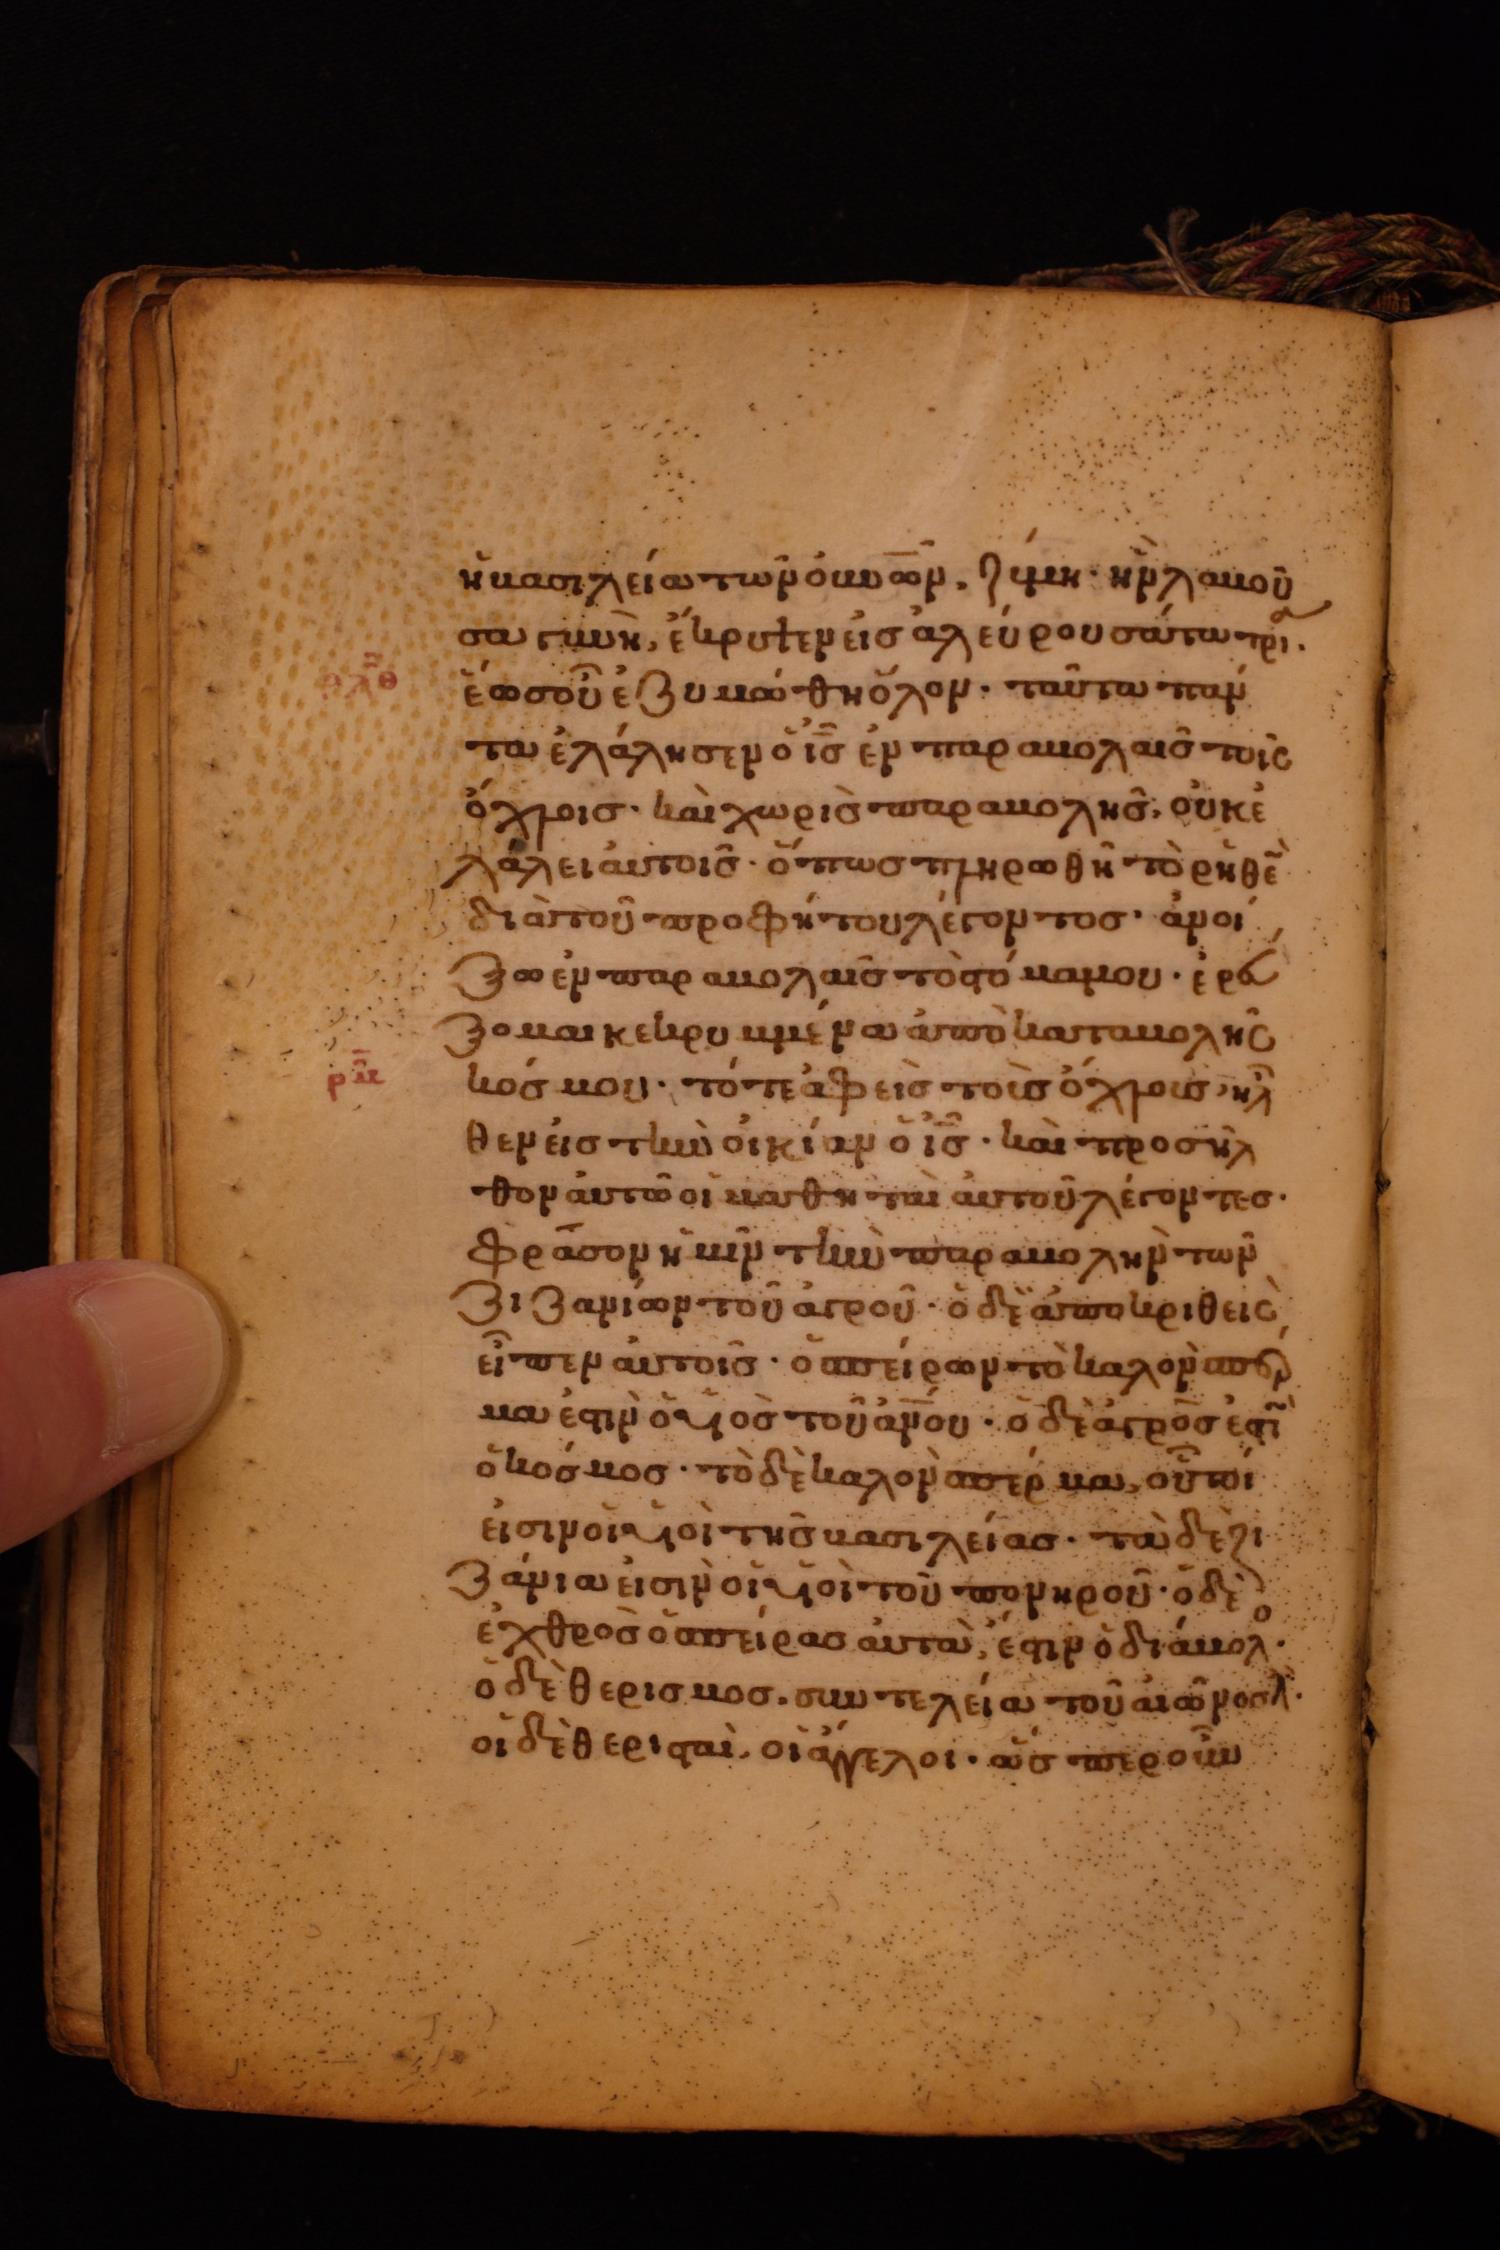 ἡ βασιλεία τῶν οὐνῶν, ζύμη· ἣν λαβοῦ
σα γυνὴ, ἔκρυψεν εἰς ἀλεύρου σάτα τρί.
ρλθ ἕως οὗ ἐζυμώθη ὅλον· ταῦτα πάν
τα ἐλάλησεν ὁ ἰς ἐν παραβολαῖς τοῖς
ὄχλοις· καὶ χωρὶς παραβολῆς, οὐκ ἐ
λάλει αὐτοῖς· ὅπως πληρωθῆ τὸ ῥηθὲ
διὰ τοῦ προφήτου λέγοντος· ἀνοί
ξω ἐν παραβολαῖς τὸ στόμα μου· ἐρεύ
ξομαι κεκρυμμένα ἀπὸ καταβολῆς
ρμ κόσμου· τότε ἀφεὶς τοὺς ὄχλους, ἦλ
θεν εἰς τὴν οἰκίαν ὁ ἰς· καὶ προσῆλ
θον αὐτῶ οἱ μαθηταὶ αὐτοῦ λέγοντες·
φράσον ἡμῖν τὴν παραβολὴν τῶν
ζιζανίων τοῦ ἀγροῦ· ὁ δὲ ἀποκριθεὶς
εἶπεν αὐτοῖς· ὁ σπείρων τὸ καλὸν σπέρ
μα ἐστὶν ὁ υἱὸς τοῦ ἀνου· ὁ δὲ ἀγρὸς ἐστὶ
ὁ κόσμος· τὸ δὲ καλὸν σπέρμα, οὗτοί
εἰσιν οἱ υἱοὶ τῆς βασιλείας· τὰ δὲ ζι
ζάνια εἰσὶν οἱ υἱοὶ τοῦ πονηροῦ· ὁ δὲ
ἐχθρὸς ὁ σπείρας αὐτὰ, ἐστιν ὁ διάβολο·
ὁ δὲ θερισμος, συντελεία τοῦ αἰῶνος
οἱ δὲ θερισταὶ, οἱ ἄγγελοι· ὥσπερ οὖν